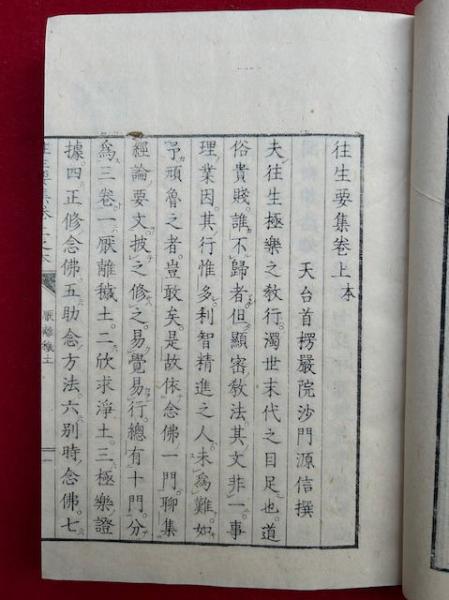 往生要集卷上本
天台首楞嚴院沙門源信撰
夫往生極樂之敎行。濁世末代之目足也。道
俗貴賤。誰不歸者。但顯密敎法。其文非一。事
理業因。其行惟多。利智精進之人。未爲難。如
予頑魯之者。豈敢矣。是故依念佛一門。聊集
經論要文。披之修之。易覺易行。總有十門。分
爲三卷。一厭離穢土。二欣求淨土。三極樂證
據。四正修念佛。五助念方法。六別時念佛。七
厭離穢土